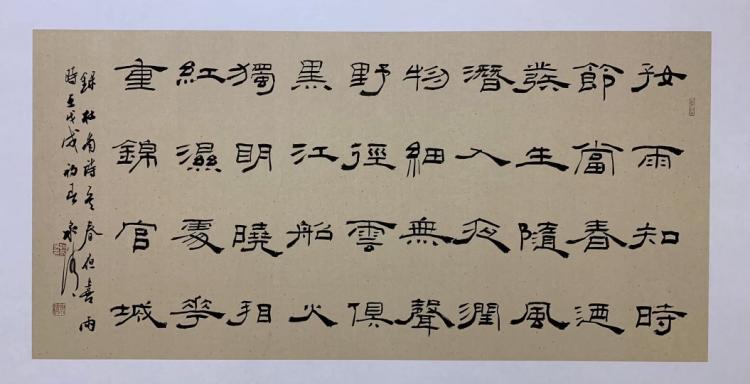 好雨知時
節當春迺
發生隨風
潛入夜潤
物細無聲
野徑雲俱
黑江船火
獨明曉看
紅濕處花
重錦官城
錄杜甫詩春夜喜雨
時在戊戌初春